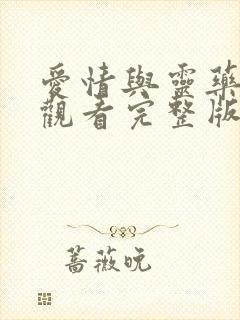 愛情與靈藥
觀看完整版
薔薇晚